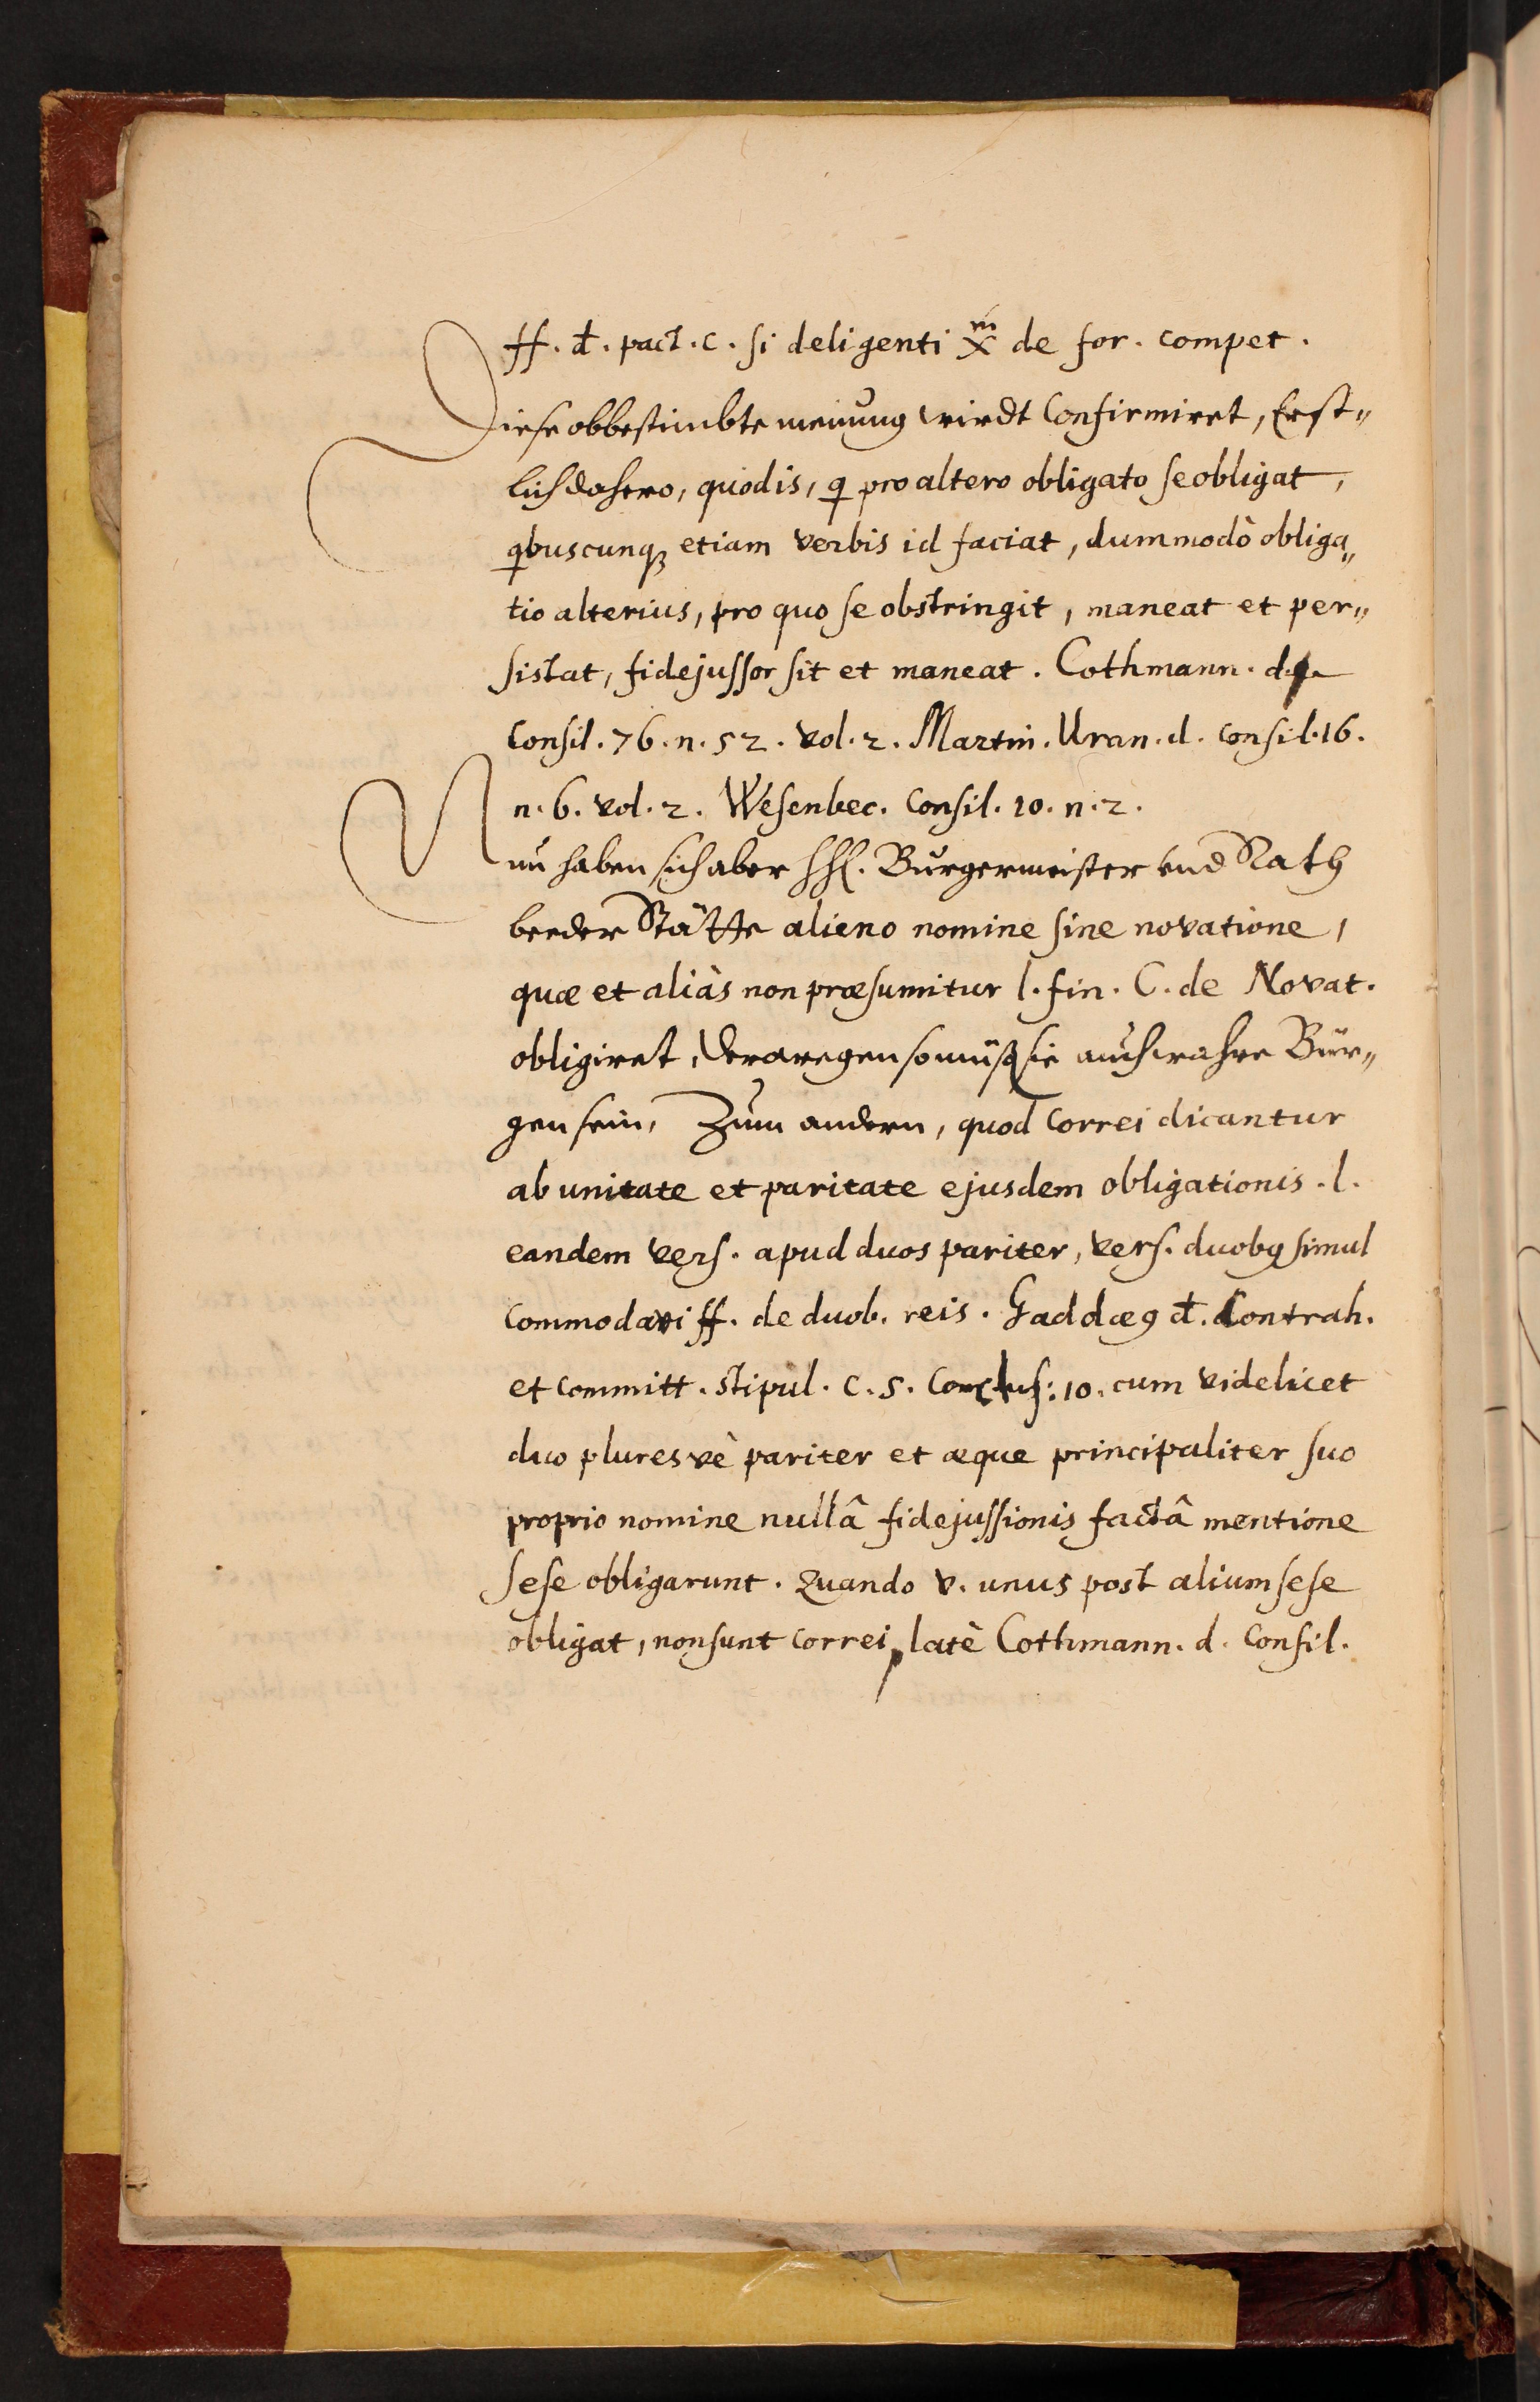 ff. đ. pact. c. si deligenti x̄ de for. compet.
Diese obbestimbte meinung wirdt Confirmiret, Erst„
lich dahero, quod is, q pro altero obligato se obligat,
qbuscunqꝫ etiam verbis id faciat, dummodò obliga„
tio alterius, pro quo se obstringit, maneat et per„
sistat, fidejussor sit et maneat. Cothmann. d.
Consil. 76. n. 52. vol. 2. Martin. Uran. d. consil. 16.
n. 6. vol. 2. Wesenbec. Consil. 10. n. 2.
Nun haben sich aber HH. Bürgermeister vnd Rath
beeder Stätte alieno nomine sine novatione,
quæ et aliàs non præsumitur l. fin. C. de Novat.
obligiret, Derowegen so müß sie auch wahre Bür„
gen sein, Zum andern, quod Correi dicantur
ab unitate et paritate ejusdem obligationis. l.
eandem vers. apud duos pariter, vers. duobꝰ simul
Commodavi ff. de duob. reis. Gaddæꝰ đ. Contrah.
et Committ. stipul. c. 5. Conclus: 10. cum videlicet
duo pluresvè pariter et æque principaliter suo
proprio nomine nullâ fidejussionis factâ mentione
sese obligarunt. Quando v. unus post alium sese
obligat, non sunt Correi, latè Cothmann. d. Consil.